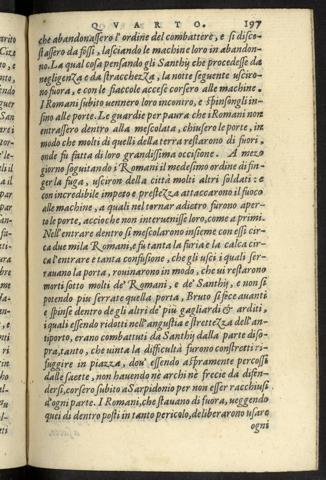 QVARTO. 197
che abandonassero l'ordine del combattere, e si disco-
stassero da fossi, lasciando le machine loro in abandon-
no. La qual cosa pensando gli Santhÿ che procedesse da
negligenza e da stracchezza, la notte seguente usciro-
no fuora, e con le fiaccole accese corsero alle machine.
I Romani subito uennero loro incontro, e spinsongli in-
sino alle porte. Le guardie per paura che i Romani non
entrassero dentro alla mescolata, chiusero le porte, in
modo che molti di quelli della terra restarono di fuori,
onde fu fatta di loro grandissima occisione. A mezo
giorno seguitando i Romani il medesimo ordine di fin-
ger la fuga, usciron della città molti altri soldati: e
con incredibile impeto e prestezza attaccarono il fuoco
alle machine, a quali nel tornar adietro furono aper-
to le porte, accioche non interuenisse loro, come a primi.
Nell'entrare dentro si mescolarono insieme con essi cir-
ca due mila Romani, e fu tanta la furia e la calca cir-
ca l'entrare e tanta confusione, che gli usci i quali ser-
rauano la porta, rouinarono in modo, che ui restarono
morti sotto molti de' Romani, e de' Santhÿ, e non si
potendo piu serrare quella porta, Bruto si fece auanti
e spinse dentro de gli altri de' piu gagliardi & arditi,
i quali essendo ridotti nell'angustia e strettezza dell'an-
tiporto, erano combattuti da Santhÿ dalla parte diso-
pra, tanto, che uinta la difficultà furono constretti ri-
fuggire in piazza, dou' essendo aspramente percossi
dalle saette, non hauendo ne archi ne frecie da difen-
dersi, corsero subito a Sarpidonio per non esser racchiusi
d'ogni parte. I Romani, che stauano di fuora, ueggendo
quei di dentro posti in tanto pericolo, deliberarono usare
ogni